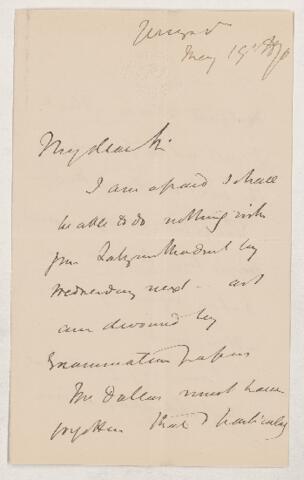 May 19th 1870
My dear Sir
I am afraid I shall
be able to do nothing with
your by
Wednesday next - as I
am devoured by
Examination papers
Mr Dallas must have
forgotten that I particularly